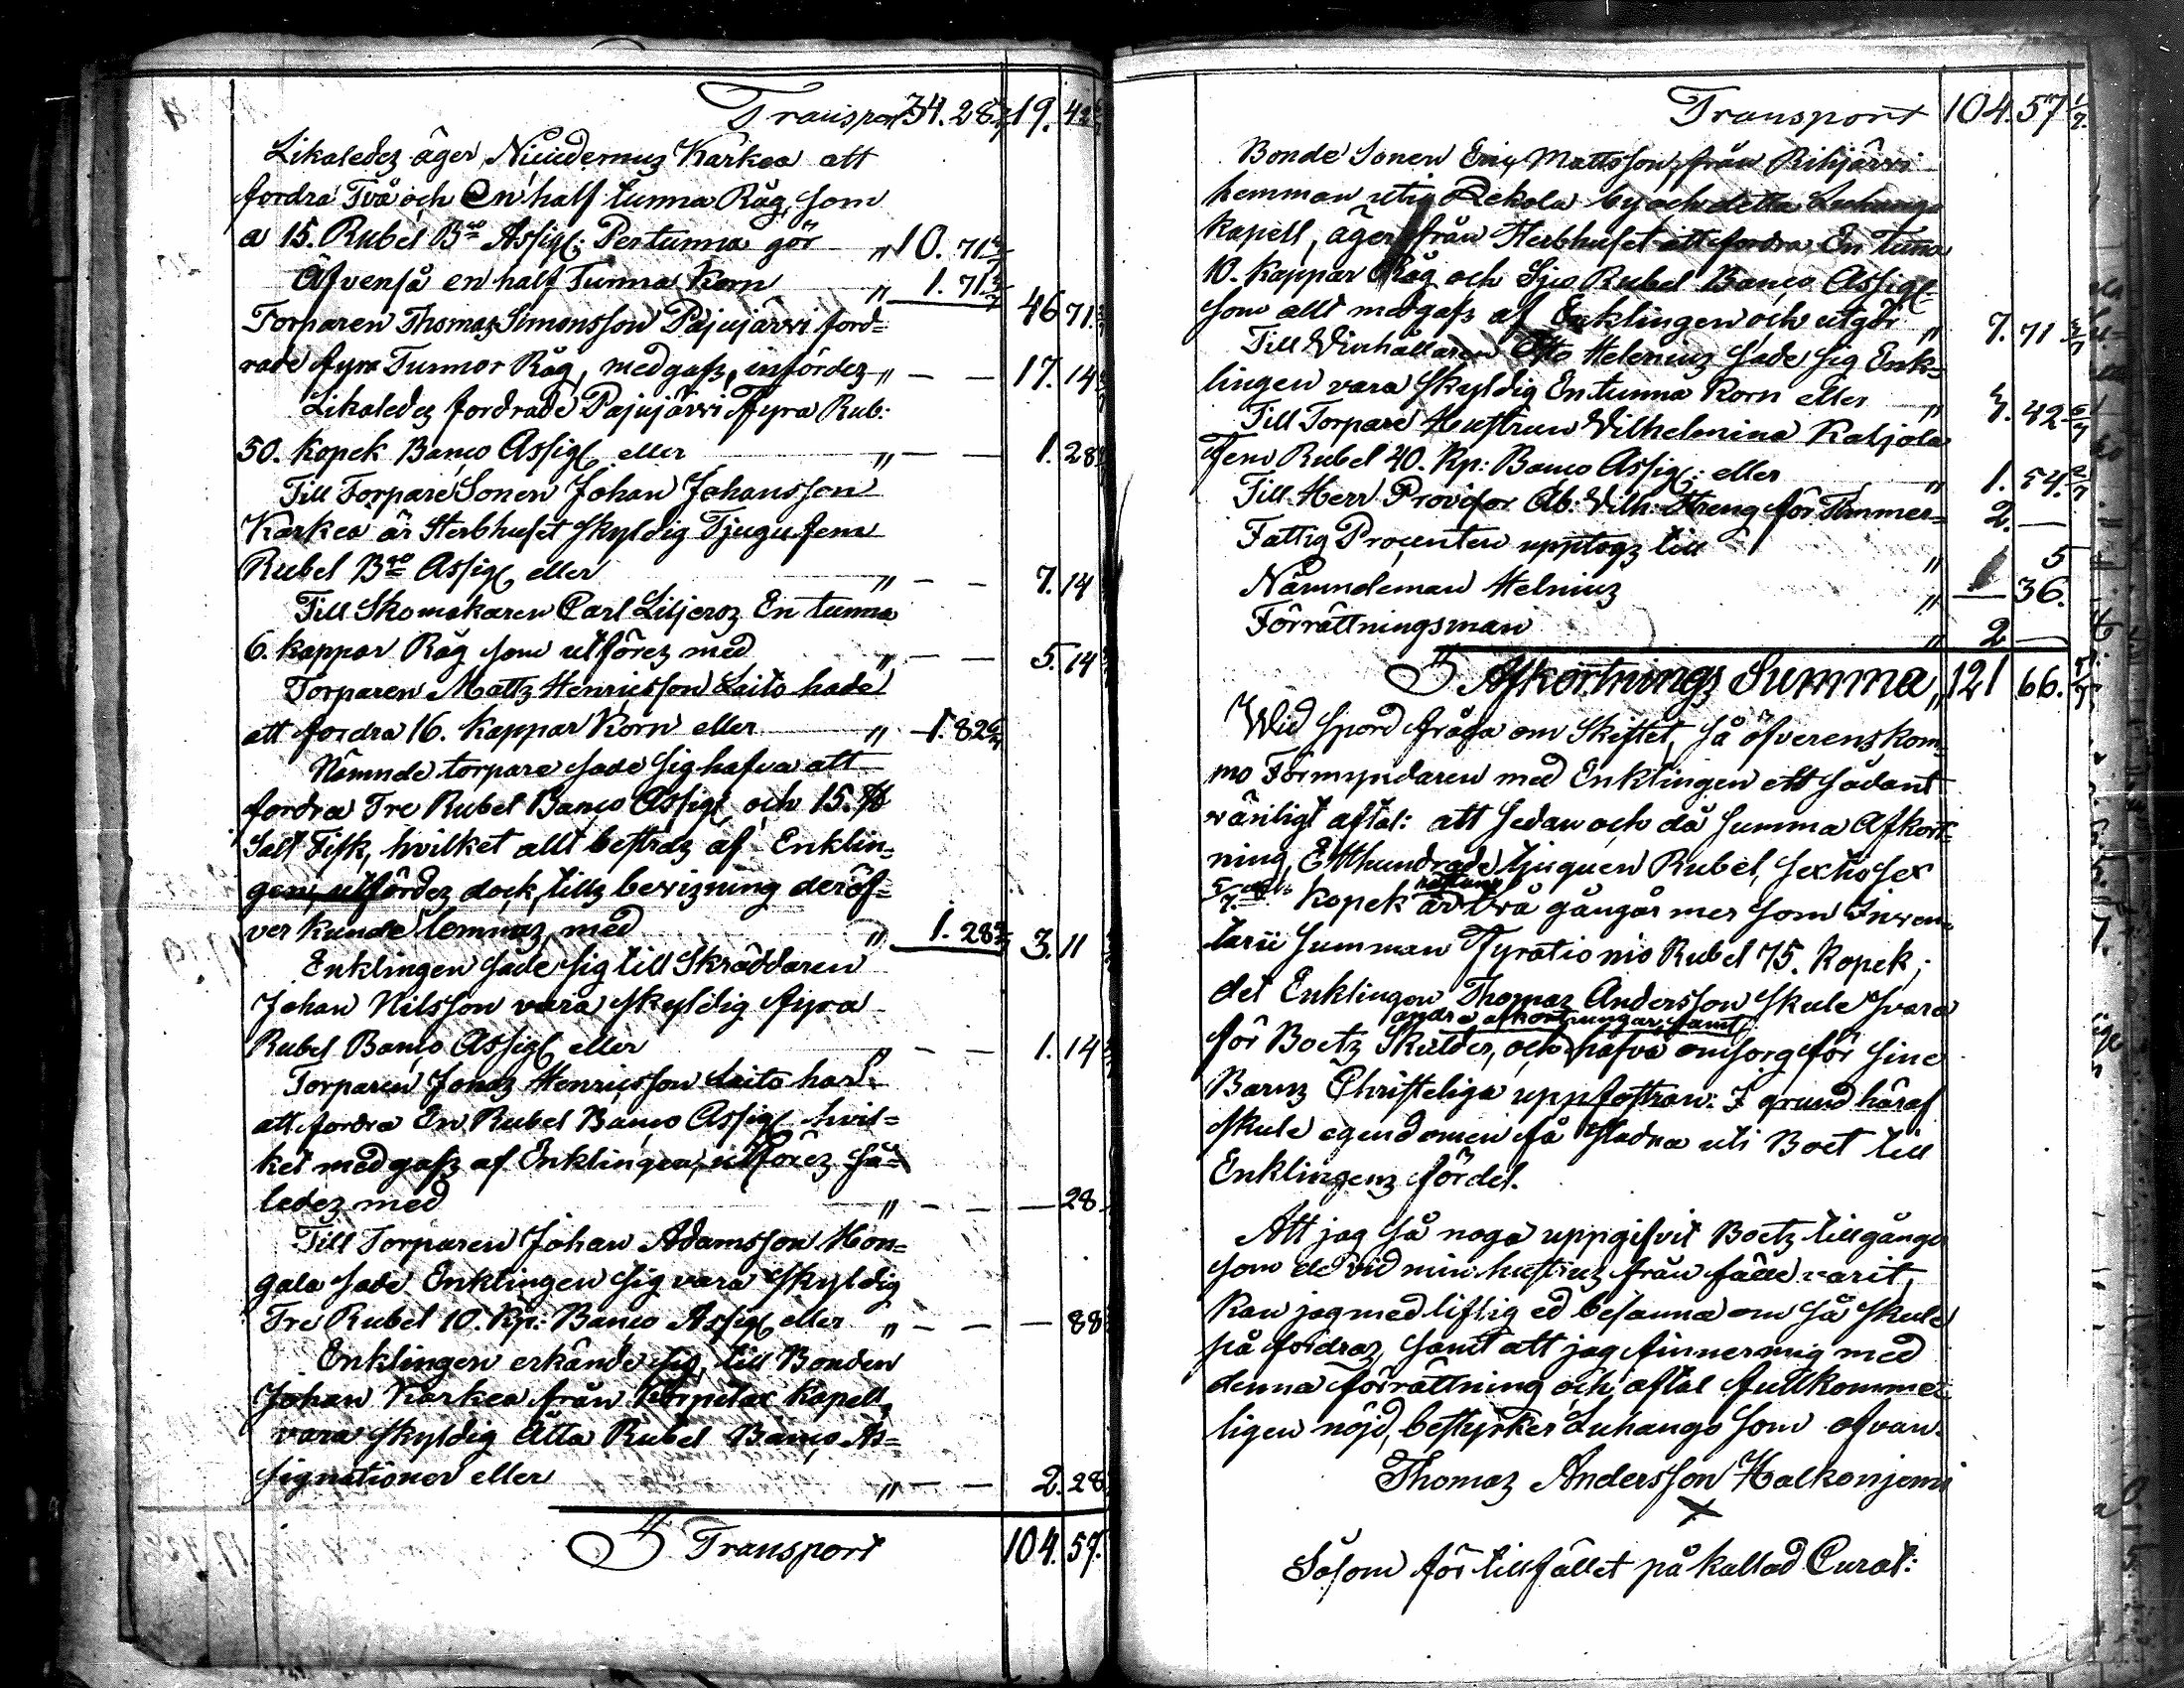 Transport 34. 28 4/7 19. 42 6/7
Likaledez äger Karkea att
fordra Två och En half tunna Råg, som
a 15. Rubel Bco Assig: Per tunna gör " 10. 71 3/7
Äfvenså en half Tunna Korn " 1. 71 3/7 46 71 3/7
Torparen Thomaz Simonsson Pajujärvi ford=
rade fyra Tunnor Råg, medgafz, infördez " — — 17. 14
Likaledez fordrade Pajujärvi Fyra Rub:
50. Kopek Banco Assig eller " — — 1. 28
Till Torpare Sonen Johan Johansson
Karkea är Sterbhuset skyldig Tjugufem
Rubel Bco Assig eller " — — 7. 14
Till Skomakaren Carl Liljeroz En tunna
6. kappar Råg som utförez med " — — 5. 14
Torparen Mattz Henricsson Laito hade
att fordra 16. kappar Korn eller " 1. 82 6/7
Nämnde torpare sade sig hafva att
fordra Tre Rubel Banco Assig och 15. ℔
Salt Fisk, hvilket allt bestrdz af Enklin=
gen, utfördez dock, tillz bevizning deröf=
ver kunde lemnaz, med " 1. 28 4/7 3. 11
Enklingen sade sig till Skräddaren
Johan Nilsson vara skyldig fyra
Rubel Banco Assig eller " — — 1. 14
Torparen Jonaz Henricsson Laito har
att fordra En Rubel Banco Assig hvil=
ket medgafz af Enklingen, utförez så=
ledez med " — — — 28
Till Torparen Johan Adamsson Hon=
gala sade Enklingen sig vara skyldig
Tre Rubel 10. Kp: Banco Assig eller " — — — 88
Enklingen erkände sig, till Bonden
Johan Karkea från Korpilax Kapell,
vara skyldig Åtta Rubel Banco As=
signationer eller " — — 2. 28
Transport 104. 57.
Transport 104. 57 1/7.
Bonde Sonen Eric Mattsson, från Rihjärvi
hemman utig Rekola by och detta Luhango
Kapell, äger från Sterbhuset att fordra En Tunna
10. Kappar Råg och Sju Rubel Banco Assig
som allt medgafz af Enklingen och utgör " 7. 71 3/7
Till Otto Heleniuz sade sig Enk=
lingen vara skyldig En tunna Korn eller " 3. 42 6/7
Till Torpare Hustrun Vilhelmina Kaljola
Fem Rubel 40. Kp: Banco Assig: eller " 1. 54. 2/7
Till Herr Provisor Ab: Vilh: Streng för Timmer= 2. —
Fattig Procenten upptogz till " 5
Nämndeman Helniuz " — 36.
Förrättningsman " 2 —
Afkortningz Summa, " 121 66. 5/7
Wid spord fråga om Skiftet, så öfverenskom=
mo Förmyndaren med Enklingen ett sådant
vänligt aftal: att sedan och då summa Afkort=
ning, Etthundrade tjuguen Rubel, sextio sex
5/7. Kopek nästan är två gångor mer som Inven=
tarii summan Fyratio nio Rubel 75. Kopek;
det Enklingen Thomaz Andersson skule svara
andra afkortningar, samt
för Boetz Skulder, och hafva omsorg för sine
Barnz Christeliga uppfostran: I grund häraf
skule egendomen få stadna uti Boet till
Enklingenz fördel.
Att jag så noga uppgifvit Boetz tillgångar
som de vid min hustruz från fälle varit,
kan jag med liflig ed besanna om så skule
på fordraz, samt att jag finner mig med
denna förrättning och aftal fullkommer
ligen nöjd, bestyrker Luhango som ofvan.
Thomaz Andersson Halkonjemi
X
Såsom för tillfället på kallad Curat: